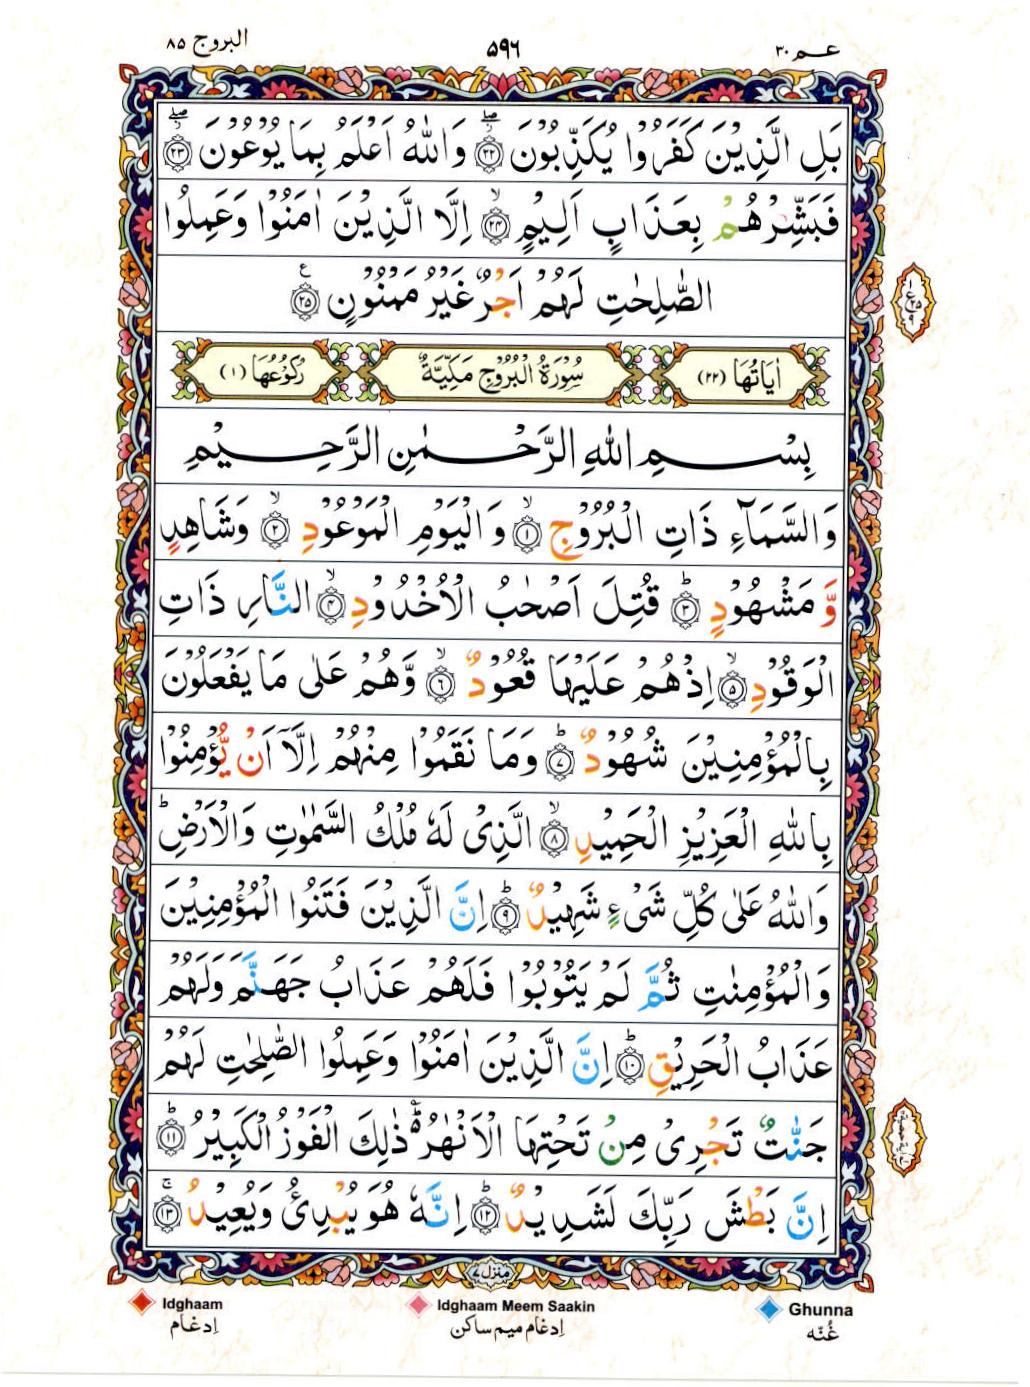 عـم ٣٠
٥٩٦
البروج ٨٥
بَلِ الَّذِيْنَ كَفَرُوْا يُكَذِّبُوْنَ ﴿٢٢﴾ۖ وَاللّٰهُ اَعْلَمُ بِمَا يُوْعُوْنَ ﴿٢٣﴾ۖ
فَبَشِّرْهُمْ بِعَذَابٍ اَلِيْمٍ ﴿٢٤﴾ۙ اِلَّا الَّذِيْنَ اٰمَنُوْا وَعَمِلُوا
الصّٰلِحٰتِ لَهُمْ اَجْرٌ غَيْرُ مَمْنُوْنٍ ﴿٢٥﴾ ع
اٰيَاتُهَا (٢٢) سُوْرَةُ الْبُرُوْجِ مَكِّيَّةٌ رُكُوْعُهَا (١)
بِسْمِ اللّٰهِ الرَّحْمٰنِ الرَّحِيْمِ
وَالسَّمَآءِ ذَاتِ الْبُرُوْجِ ﴿١﴾ۙ وَالْيَوْمِ الْمَوْعُوْدِ ﴿٢﴾ۙ وَشَاهِدٍ
وَّ مَشْهُوْدٍ ﴿٣﴾ؕ قُتِلَ اَصْحٰبُ الْاُخْدُوْدِ ﴿٤﴾ۙ النَّارِ ذَاتِ
الْوَقُوْدِ ﴿٥﴾ۙ اِذْ هُمْ عَلَيْهَا قُعُوْدٌ ﴿٦﴾ۙ وَّهُمْ عَلٰى مَا يَفْعَلُوْنَ
بِالْمُؤْمِنِيْنَ شُهُوْدٌ ﴿٧﴾ؕ وَمَا نَقَمُوْا مِنْهُمْ اِلَّآ اَنْ يُّؤْمِنُوْا
بِاللّٰهِ الْعَزِيْزِ الْحَمِيْدِ ﴿٨﴾ۙ الَّذِيْ لَهٗ مُلْكُ السَّمٰوٰتِ وَالْاَرْضِؕ
وَاللّٰهُ عَلٰى كُلِّ شَيْءٍ شَهِيْدٌ ﴿٩﴾ؕ اِنَّ الَّذِيْنَ فَتَنُوا الْمُؤْمِنِيْنَ
وَالْمُؤْمِنٰتِ ثُمَّ لَمْ يَتُوْبُوْا فَلَهُمْ عَذَابُ جَهَنَّمَ وَلَهُمْ
عَذَابُ الْحَرِيْقِ ﴿١٠﴾ؕ اِنَّ الَّذِيْنَ اٰمَنُوْا وَعَمِلُوا الصّٰلِحٰتِ لَهُمْ
جَنّٰتٌ تَجْرِيْ مِنْ تَحْتِهَا الْاَنْهٰرُ ؕ ذٰلِكَ الْفَوْزُ الْكَبِيْرُ ﴿١١﴾ؕ
اِنَّ بَطْشَ رَبِّكَ لَشَدِيْدٌ ﴿١٢﴾ؕ اِنَّهٗ هُوَ يُبْدِئُ وَيُعِيْدُ ﴿١٣﴾ۚ
منزل ٧
Idghaam
Idghaam Meem Saakin
Ghunna
اِدغام
اِدغام ميم ساكن
غُنّه